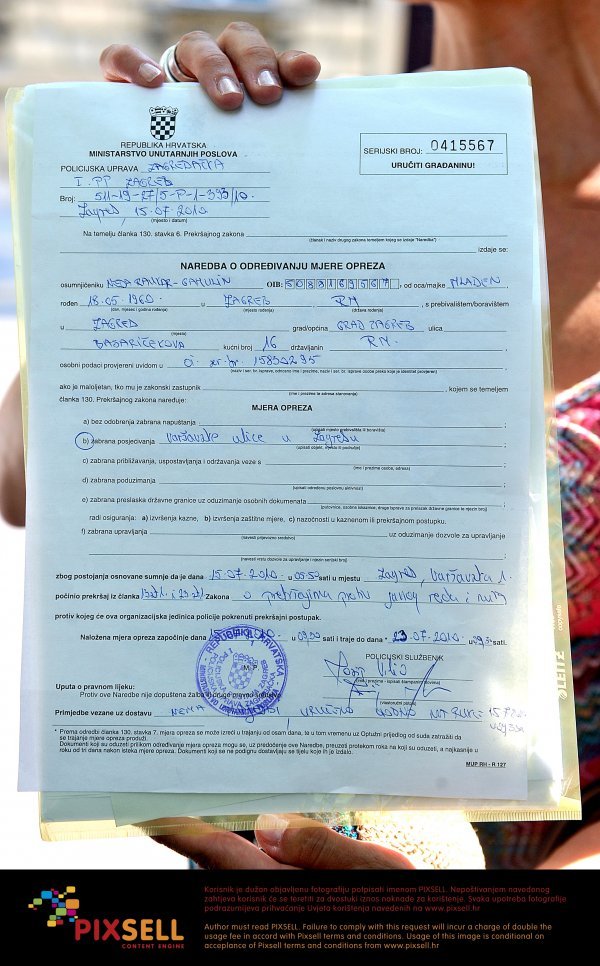 REPUBLIKA HRVATSKA
MINISTARSTVO UNUTARNJIH POSLOVA
SERIJSKI BROJ: 0415567
URUČITI GRAĐANINU!
POLICIJSKA UPRAVA ZAGREBAČKA
I. PP ZAGREB
Broj: 511-19-27/5-P-1-333/10.
Zagreb, 15.07.2010.
(mjesto i datum)
Na temelju članka 130. stavka 6. Prekršajnog zakona
(članak i naziv drugog zakona temeljem kojeg se izdaje "Naredba")
izdaje se:
NAREDBA O ODREĐIVANJU MJERE OPREZA
osumnjičeniku OIB: , od oca/majke MLADEN
rođen 18.05.1960. u ZAGREB RH , s prebivalištem/boravištem
(dan, mjesec i godina rođenja) (mjesto rođenja) (država rođenja)
u ZAGREB grad/općina GRAD ZAGREB ulica
(mjesto)
kućni broj 16 državljanin RH ,
osobni podaci provjereni uvidom u
(naziv i ser. br. isprave, odnosno ime i prezime, naziv i ser. br. isprave osobe preko koje je identitet provjeren)
ako je maloljetan, tko mu je zakonski zastupnik , kojem se temeljem
(ime i prezime te adresa stanovanja)
članka 130. Prekršajnog zakona naređuje:
MJERA OPREZA
a) bez odobrenja zabrana napuštanja ;
(upisati mjesto prebivališta ili boravišta)
b) zabrana posjećivanja Varšavske ulice u Zagrebu ;
(upisati objekt, mjesto ili područje)
c) zabrana približavanja, uspostavljanja i održavanja veze s ;
(ime i prezime osobe, adresa)
d) zabrana poduzimanja ;
(upisati određenu poslovnu aktivnost)
e) zabrana preslaska državne granice uz oduzimanje osobnih dokumenata
(putovnice, osobne iskaznice, druge isprave za prelazak državne granice te njezin broj)
radi osiguranja: a) izvršenja kazne, b) izvršenja zaštitne mjere, c) nazočnosti u kaznenom ili prekršajnom postupku.
f) zabrana upravljanja uz oduzimanje dozvole za upravljanje
(navesti prijevozno sredstvo)
(navesti vrstu dozvole za upravljanje i njezin serijski broj)
zbog postojanja osnovane sumnje da je dana 15.07.2010. u sati u mjestu Zagreb, Varšavska
počinio prekršaj iz članka Zakona o prekršajima protiv javnog reda i mira
protiv kojeg će ova organizacijska jedinica policije pokrenuti prekršajni postupak.
Naložena mjera opreza započinje dana u 09,30 sati i traje do dana * 23.07.2010. u sati.
POLICIJSKI SLUŽBENIK
(vlastoručni potpis)
Uputa o pravnom lijeku:
Protiv ove Naredbe nije dopuštena žalba
Primjedbe vezane uz dostavu NEMA URUČENO OSOBNO
* Prema odredbi članka 130. stavka 7. mjera opreza se može izreći u trajanju od osam dana, te u tom vremenu uz Optužni prijedlog od suda zatražiti da
se trajanje mjere opreza produži.
Dokumenti koji su oduzeti prilikom određivanja mjere opreza mogu se, uz predočenje ove Naredbe, preuzeti protekom roka na koji su oduzeti, a najkasnije u
roku od tri dana nakon isteka mjere opreza. Dokumenti koji se ne podignu dostavljaju se tijelu koje ih je izdalo.
MUP RH - R 127
LEITZ
PIXSELL
CONTENT ENGINE
Korisnik je dužan objavljenu fotografiju potpisati imenom PIXSELL. Nepoštivanjem navedenog
zahtjeva korisnik će se teretiti za dvostruki iznos naknade za korištenje. Svaka upotreba fotografije
podrazumijeva prihvaćanje Uvjeta korištenja navedenih na www.pixsell.hr
Author must read PIXSELL. Failure to comply with this request will incur a charge of double the
usage fee in accord with Pixsell terms and conditions. Usage of this image is conditional on
acceptance of Pixsell terms and conditions from www.pixsell.hr